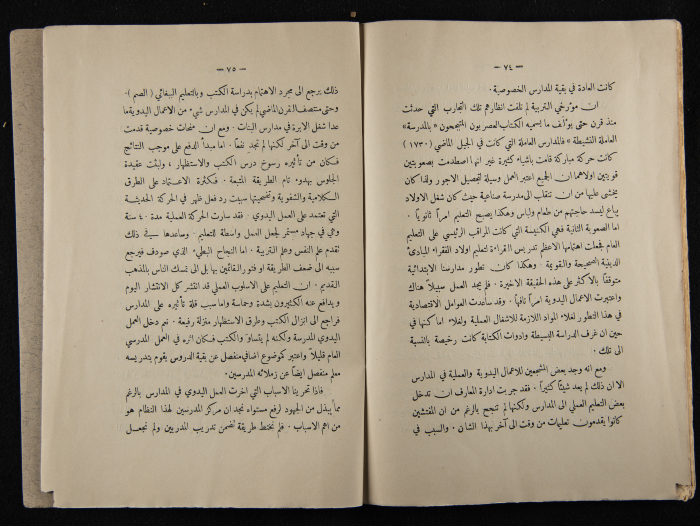 — ٧٤ —
كانت العادة في بقية المدارس الخصوصية .
ان مؤرخي التربية لم تلفت انظارهم تلك التجارب التي حدثت
منذ قرن حتى يؤلف ما يسميه الكتاب العصريون المتبجحون « بالمدرسة
العاملة النشيطة » فالمدارس العاملة التي كانت في الجيل الماضي ( ١٧٣٠ )
كانت حركة مباركة قامت باشياء كثيرة غير انها اصطدمت بصعوبتين
قويتين اولاهما ان الجميع اعتبر العمل وسيلة لتحصيل الاجور ولذا كان
يخشى عليها من ان تنقلب الى مدرسة صناعية حيث كان شغل الاولاد
يباع ليسد حاجتهم من طعام ولباس وهكذا يصبح التعليم امراً ثانوياً .
اما الصعوبة الثانية فهي الكنيسة التي كانت المراقب الرئيسي على التعليم
العام فجعلت اهتمامها الاعظم تدريس القراءة لتعليم اولاد الفقراء المبادئ
الدينية الصحيحة والقويمة . وهكذا كان تطور مدارسنا الابتدائية
متوقفاً بالاكثر على هذه الحقيقة الاخيرة . فلم يجد العمل سبيلاً هناك
واعتبرت الاعمال اليدوية امراً تافهاً . وقد ساعدت العوامل الاقتصادية
في هذا التطور لغلاء المواد اللازمة للاشغال العملية ولغلاء اما كنها في
حين ان غرف الدراسة البسيطة وادوات الكتابة كانت رخيصة بالنسبة
الى تلك .
ومع انه وجد بعض المشجعين للاعمال اليدوية والعملية في المدارس
الا ان ذلك لم يعد شيئاً كثيراً . فقد جربت ادارة المعارف ان تدخل
بعض التعليم العملي الى المدارس ولكنها لم تنجح بالرغم من ان المفتشين
كانوا يقدمون تعليمات من وقت الى آخر بهذا الشان . والسبب في
— ٧٥ —
ذلك يرجع الى مجرد الاهتمام بدراسة الكتب وبالتعليم الببغائي ( الصم ) .
وحتى منتصف القرن الماضي لم يكن في المدارس شيء من الاعمال اليدوية ما
عدا شغل الابرة في مدارس البنات . ومع ان منحات خصوصية قدمت
من وقت الى آخر لكنها لم تجد نفعاً . اما مبدأ الدفع على موجب النتائج
فكان من تأثيره رسوخ درس الكتب والاستظهار ، وابقت عقيدة
الجلوس بهدوء تام الطريقة المتبعة . فكثرة الاعتماد على الطرق
الكلامية والشفوية وتضحيتها سببت رد فعل ظهر في الحركة الحديثة
التي تعتمد على العمل اليدوي . فقد سارت الحركة العملية مدة ٤٠ سنة
وهي في جهاد مستمر لجعل العمل واسطة للتعليم . وساعدها في ذلك
تقدم علم النفس وعلم التربية . اما النجاح البطيء الذي صودف فيرجع
سببه الى ضعف الطريقة او فتور القائمين بها بل الى تمسك الناس بالمذهب
القديم . ان التعليم على الاسلوب العملي قد انتشر كل الانتشار اليوم
ويدافع عنه الكثيرون بشدة وحماسة واما سبب قلة تأثيره على المدارس
فراجع الى انزال الكتب وطرق الاستظهار منزلة رفيعة . نعم دخل العمل
اليدوي المدرسة ولكنه لم يتساوَ والكتب فكان اثره في العمل المدرسي
العام قليلاً واعتبر كموضوع اضافي منفصل عن بقية الدروس يقوم بتدريسه
معلم منفصل ايضاً عن زملائه المدرسين .
فاذا تحرينا الاسباب التي اخرت العمل اليدوي في المدارس بالرغم
مما يبذل من الجهود لرفع مستواه نجد ان مركز المدرسين لهذا النظام هو
من اهم الاسباب . فلم تختط طريقة تضمن تدريب المدربين ولم تجعل